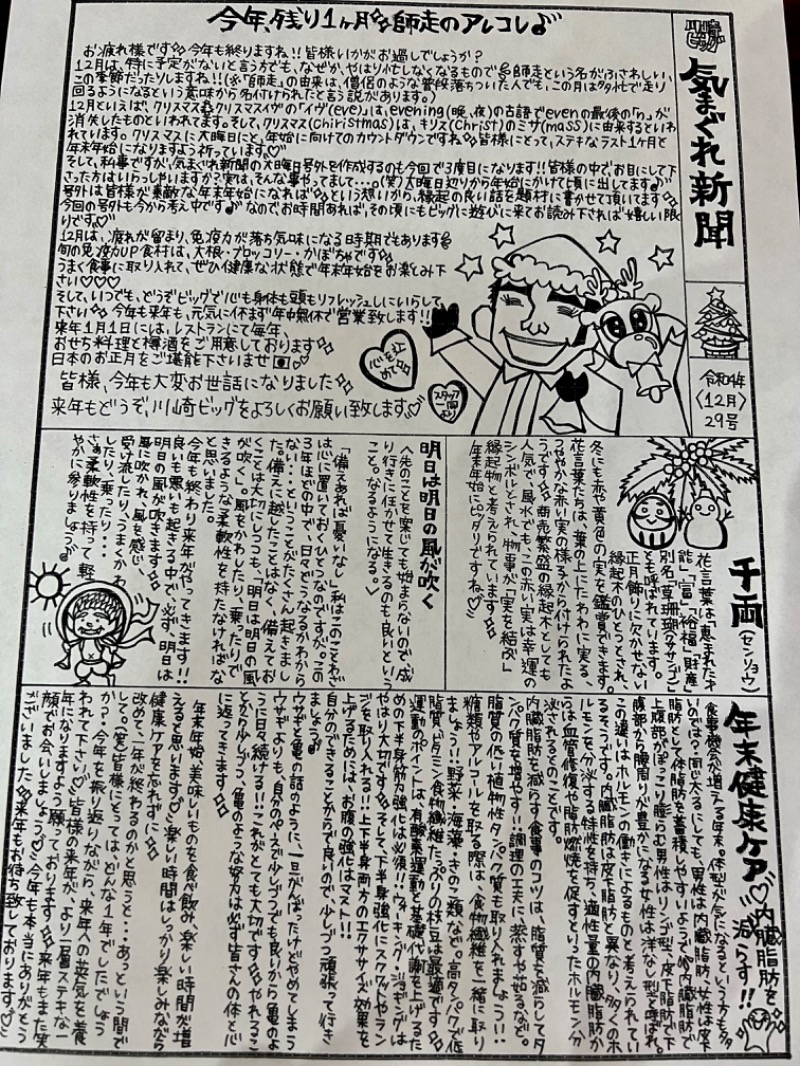 今年、残り1ヶ月 師走のアレコレ♪
お疲れ様です 今年も終りますね!! 皆様いかがお過しでしょうか?
12月は、特に予定がないと言う方でも、なぜか、やはり忙しなくなるもので 師走という名がふさわしい、
この季節だったりしますね!!(※「師走」の由来は、僧侶のような普段落ちついた人でも、この月は夕忙で走り
回るようになるという意味から名付けられたと言う説があります。)
12月といえば、クリスマス クリスマスイヴの「イヴ(eve)」は、evening(晩、夜)の古語でevenの最後の「n」が
消失したものといわれてます。そして、クリスマス(Chiristmas)は、キリス(Christ)のミサ(mass)に由来するといわ
れています。クリスマスに大晦日にと、年始に向けてのカウントダウンですね 皆様にとって、ステキなラスト1ヶ月と
年末年始になりますよう祈っています。♡
そして、私事ですが、気まぐれ新聞の大晦日号外を作成するのも今回で3度目になります!!皆様の中でお目にして下
さった方はいらっしゃいますか?実は、そんな事やってまして・・・。(笑)大晦日辺りから年始にかけて頃に出してます♪
号外は皆様が素敵な年末年始になれば という想いから、縁起の良い話を題材に書かせて頂いてます
今回の号外も今から考え中です♪ なのでお時間あれば、その頃にもビッグに遊びに来てお読み下されば嬉しい限
りです♡
12月は、疲れが溜まり、免疫力が落ち気味になる時期でもあります
旬の免疫力UP食材は、大根・ブロッコリー・かぼちゃです
うまく食事に取り入れて、ぜひ健康な状態で年末年始をお楽しみ下
さい♡♡♡
そして、いつでも、どうぞビッグで心も身体も頭もリフレッシュしにいらして
下さい 今年も来年も、元気に休まず年中無休で営業致します!!
来年1月1日には、レストランにて毎年、
おせち料理と樽酒をご用意しております
日本のお正月をご堪能下さいませ
皆様、今年も大変お世話になりました
来年もどうぞ、川崎ビッグをよろしくお願い致します。♡
心を込めて♡
スタッフ一同より
川崎ビッグ
気まぐれ新聞
令和4年
〈12月〉
29号
千両(センリョウ)
花言葉は「恵まれた才
能」「富」「裕福」「財産」
別名「草珊瑚(クササンゴ)」
とも呼ばれています。
正月飾りに欠かせない
縁起木のひとつとされ、
冬にも赤や黄色の実を鑑賞できます。
花言葉たちは、葉の上にたわわに実る、
つややかな赤い実の様子から付けられたよ
うです 商売繁盛の縁起木としても
人気で、風水でも、この赤い実は幸運の
シンボルとされ、物事が「実を結ぶ」
縁起物と考えられています
年末年始にピッタリですね♡
明日は明日の風が吹く
〈先のことを案じても始まらないので、成
り行きに任せて生きるのも良いという
こと。なるようになる。〉
「備えあれば憂いなし」私はこのことわざ
は心に置いておくひとつなのですが、この
3年ほどの中で、日々どうなるかわから
ない・・・ということがたくさん起きまし
た。備えに越したことはなく、備えてお
くことは大切にしつつも、「明日は明日の風
が吹く」。風をかわしたり、乗ったりで
きるような柔軟性を持たなければな
と思いました。
今年も終わり来年がやってきます!!
良いも悪いも起きる中で、必ず、明日は
明日の風が吹きます
風に吹かれ、風を感じ、
受け流したり、うまくかわ
したり、乗ったり・・・
さぁ柔軟性を持って軽
やかに参りましょう♪
年末健康ケア♡内臓脂肪を減らす!!
食事機会が増える年末、体型が気になるという方も多
いのでは?同じ太るにしても、男性は内臓脂肪、女性は皮下
脂肪として体脂肪を蓄積しやすいようで 内臓脂肪で
上腹部がぽっこり膨らむ男性はリンゴ型、皮下脂肪で下
腹部から腰周りが豊かになる女性は洋なし型と呼ばれ、
この違いはホルモンの働きによるものと考えられてい
るそうです。内臓脂肪は皮下脂肪と異なり、多くのホ
ルモンを分泌する特性を持ち、適性量の内臓脂肪か
らは血管修復や脂肪燃焼を促すといったホルモン分
泌されるとのことです。
内臓脂肪を減らす食事のコツは、脂質を減らしてタ
ンパク質を増やす!!調理の工夫に、蒸すや茹るなど。
脂質の低い植物性タンパク質も取り入れましょう!!
糖類やアルコールを取る際は、食物繊維を一緒に取り
ましょう!!野菜・海藻・きのこ類など。高タンパク、低
脂質、ビタミン、食物繊維たっぷりの枝豆は最適です
運動のポイントは、有酸素運動と基礎代謝を上げるた
めの下半身筋力強化は必須!!ウォーキング、ジョギングは
やはり大切です そして、下半身強化にスクワットやラン
ジを取り入れる!!上下半身両方のエクササイズ効果を
上げるためには、お腹の強化はマスト!!
自分のできることからで良いので、少しづつ頑張って行き
ましょう♪
ウサギと亀の話のように、一旦がんばったけどやめてしまう
ウサギよりも、自分のペースで少しづつでも良いから亀のよ
うに日々続ける!!これがとても大切です やれるこ
とから少しづつ、亀のような努力は必ず皆さんの体と心
に返ってきます
年末年始、美味しいものを食べ飲み、楽しい時間が増
えると思います♡ 楽しい時間はしっかり楽しみながら
健康ケアを忘れずに
改めて、一年が終わるのかと思うと・・・あっという間で
して。(笑)皆様にとっては、どんな1年でしたでしょう
か?今年を振り返りながら、来年への英気を養
われて下さい♡皆様の来年が、より一層ステキな一
年になりますよう願っております 来年もまた笑
顔でお会いしましょう♡今年も本当にありがとう
ございました 来年もお待ち致しております。♡